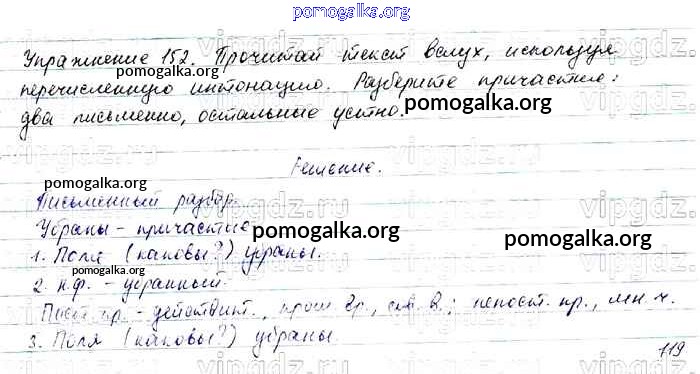 pomogalka.org
Упражнение 152. Прочитай текст вслух, используя
перечисленную интонацию. Разберите причастие:
два письменно, остальные устно.
pomogalka.org
Решение.
pomogalka.org
Письменный разбор.
Убраны - причастие
1. Поля (каковы?) убраны.
pomogalka.org
pomogalka.org
2. н.ф. - убранный.
pomogalka.org
Пост. пр. - действит., прош. вр., сов. в.; непост. пр., мн. ч.
3. Поля (каковы?) убраны.
119
vipgdz.ru